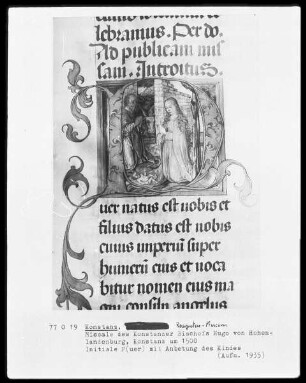 lebramus. Per do.
Ad publicam mis
sam. Introitus.
uer natus est nobis et
filius datus est nobis
cuius imperiū super
humerū eius et voca
bitur nomen eius ma
gni consilij angelus
77 0 19 Konstanz, Rosgarten-Museum
Missale des Konstanzer Bischofs Hugo von Hohen-
landenburg, Konstanz um 1500
Initiale P(uer) mit Anbetung des Kindes
(Aufn. 1935)